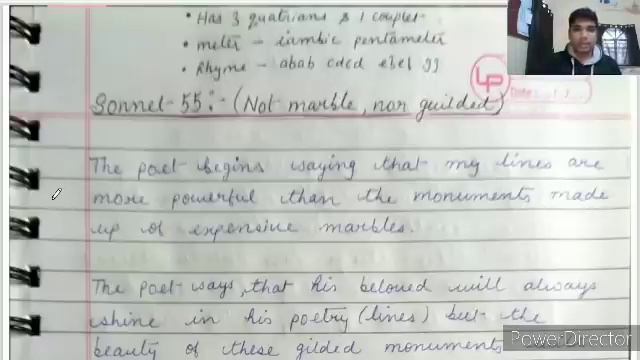 • Has 3 quatrians & 1 couplet-
• meter - iambic pentameter
• Rhyme - abab cdcd efef gg
LP
Date:
Sonnet-55:- (Not marble, nor guilded)
The poet begins saying that my lines are
more powerful than the monuments made
up of expensive marbles.
The poet says, that his beloved will always
shine in his poetry (lines) but the
beauty of these gilded monuments
PowerDirector